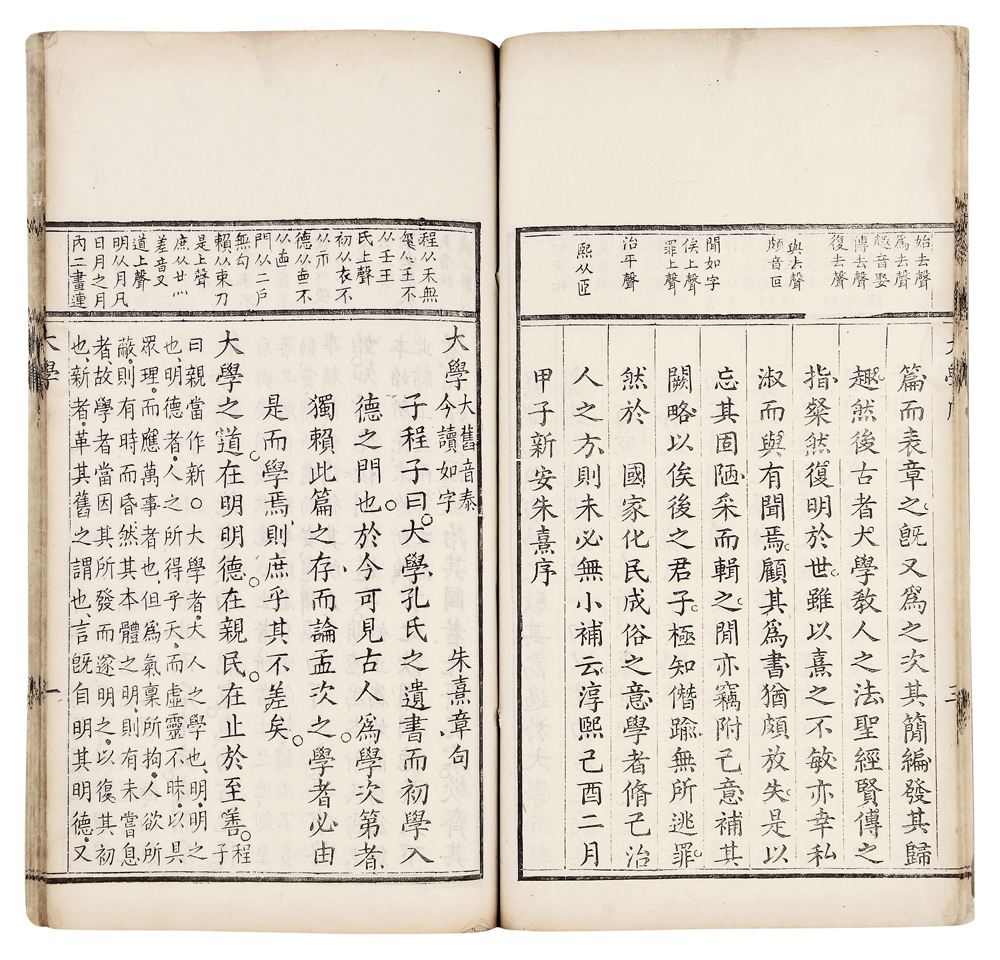 始去聲
為去聲
趣音娶
傳去聲
復去聲
與去聲
頗音叵
閒如字
俟上聲
罪上聲
治平聲
熙从𦣞
篇而表章之既又爲之次其簡編發其歸
趣然後古者大學敎人之法聖經賢傳之
指粲然復明於世雖以熹之不敏亦幸私
淑而與有聞焉顧其爲書猶頗放失是以
忘其固陋采而輯之閒亦竊附己意補其
闕略以俟後之君子極知僭踰無所逃罪
然於 國家化民成俗之意學者脩己治
人之方則未必無小補云淳熙己酉二月
甲子新安朱熹序
程从禾無
从𡈼不
从壬王
氏上聲
初从衣不
从示
德从𢛳不
从
門从二戶
無勾
賴从束刀
是上聲
庶从廿灬
差音又
道上聲
明从月凡
日月之月
內二畫連
大學
大舊音泰
今讀如字
朱熹章句
子程子曰大學孔氏之遺書而初學入
德之門也於今可見古人爲學次第者
獨賴此篇之存而論孟次之學者必由
是而學焉則庶乎其不差矣
大學之道在明明德在親民在止於至善
程子
曰親當作新○大學者大人之學也明明之
也明德者人之所得乎天而虛靈不昧以具
眾理而應萬事者也但爲氣稟所拘人欲所
蔽則有時而昏然其本體之明則有未嘗息
者故學者當因其所發而遂明之以復其初
也新者革其舊之謂也言既自明其明德又
大學
一